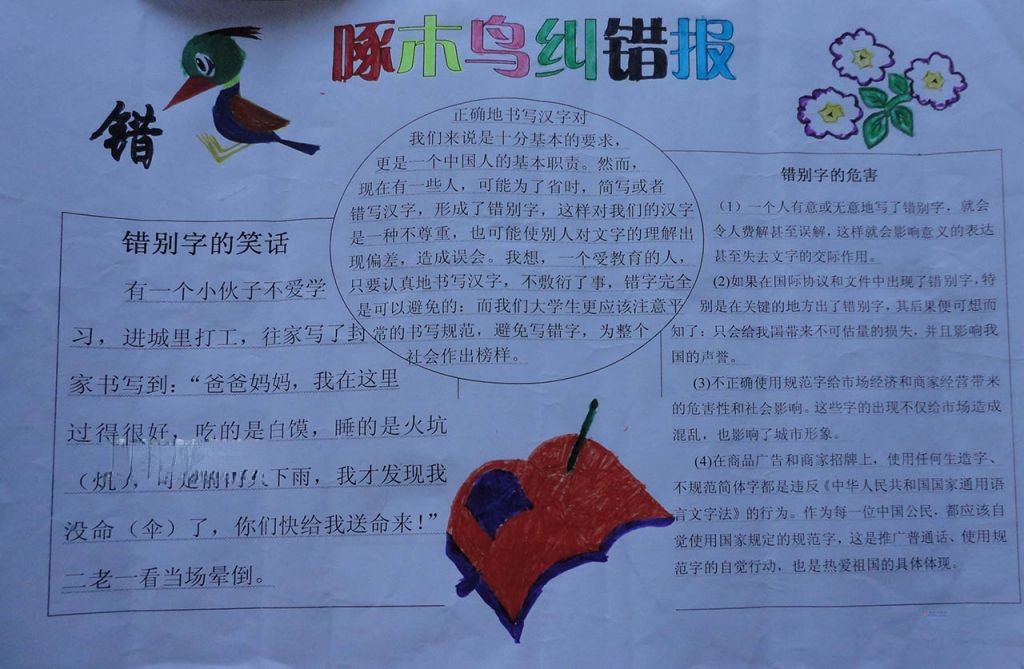 啄木鸟纠错报
错
正确地书写汉字对
我们来说是十分基本的要求，
更是一个中国人的基本职责。然而，
现在有一些人，可能为了省时，简写或者
错写汉字，形成了错别字，这样对我们的汉字
是一种不尊重，也可能使别人对文字的理解出
现偏差，造成误会。我想，一个爱教育的人，
只要认真地书写汉字，不敷衍了事，错字完全
是可以避免的：而我们大学生更应该注意平
常的书写规范，避免写错字，为整个
社会作出榜样。
错别字的笑话
有一个小伙子不爱学
习，进城里打工，往家写了封
家书写到：“爸爸妈妈，我在这里
过得很好，吃的是白馍，睡的是火坑
下雨，我才发现我
没命（伞）了，你们快给我送命来！”
二老一看当场晕倒。
错别字的危害
（1）一个人有意或无意地写了错别字，就会
令人费解甚至误解，这样就会影响意义的表达
甚至失去文字的交际作用。
(2)如果在国际协议和文件中出现了错别字，特
别是在关键的地方出了错别字，其后果便可想而
知了：只会给我国带来不可估量的损失，并且影响我
国的声誉。
(3)不正确使用规范字给市场经济和商家经营带来
的危害性和社会影响。这些字的出现不仅给市场造成
混乱，也影响了城市形象。
(4)在商品广告和商家招牌上，使用任何生造字、
不规范简体字都是违反《中华人民共和国国家通用语
言文字法》的行为。作为每一位中国公民，都应该自
觉使用国家规定的规范字，这是推广普通话、使用规
范字的自觉行动，也是热爱祖国的具体体现。